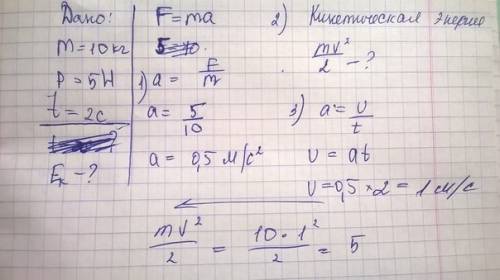 Дано:
m = 10 кг
P = 5 H
t = 2c
Eк - ?
F = ma
1) a = F/m
a = 5/10
a = 0,5 м/с²
2) Кинетическая Энергие
mv²/2 - ?
3) a = υ/t
υ = at
υ = 0,5 × 2 = 1 м/с
mv²/2 = 10 • 1²/2 = 5